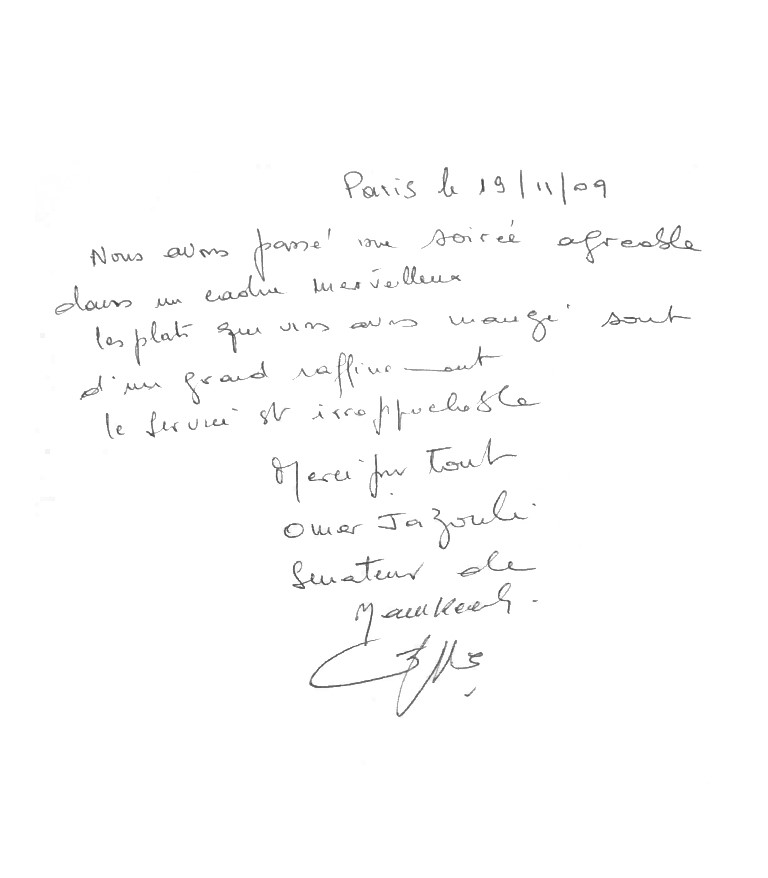 Paris le 19/11/09
Nous avons passé une soireé agreable
dans un cadre merveilleux
les plats que nous avons mangé sont
d'un grand raffinement
le service est irreprochable
Merci pour tout
Omar Jazouli
Senateur de
Marrakech.